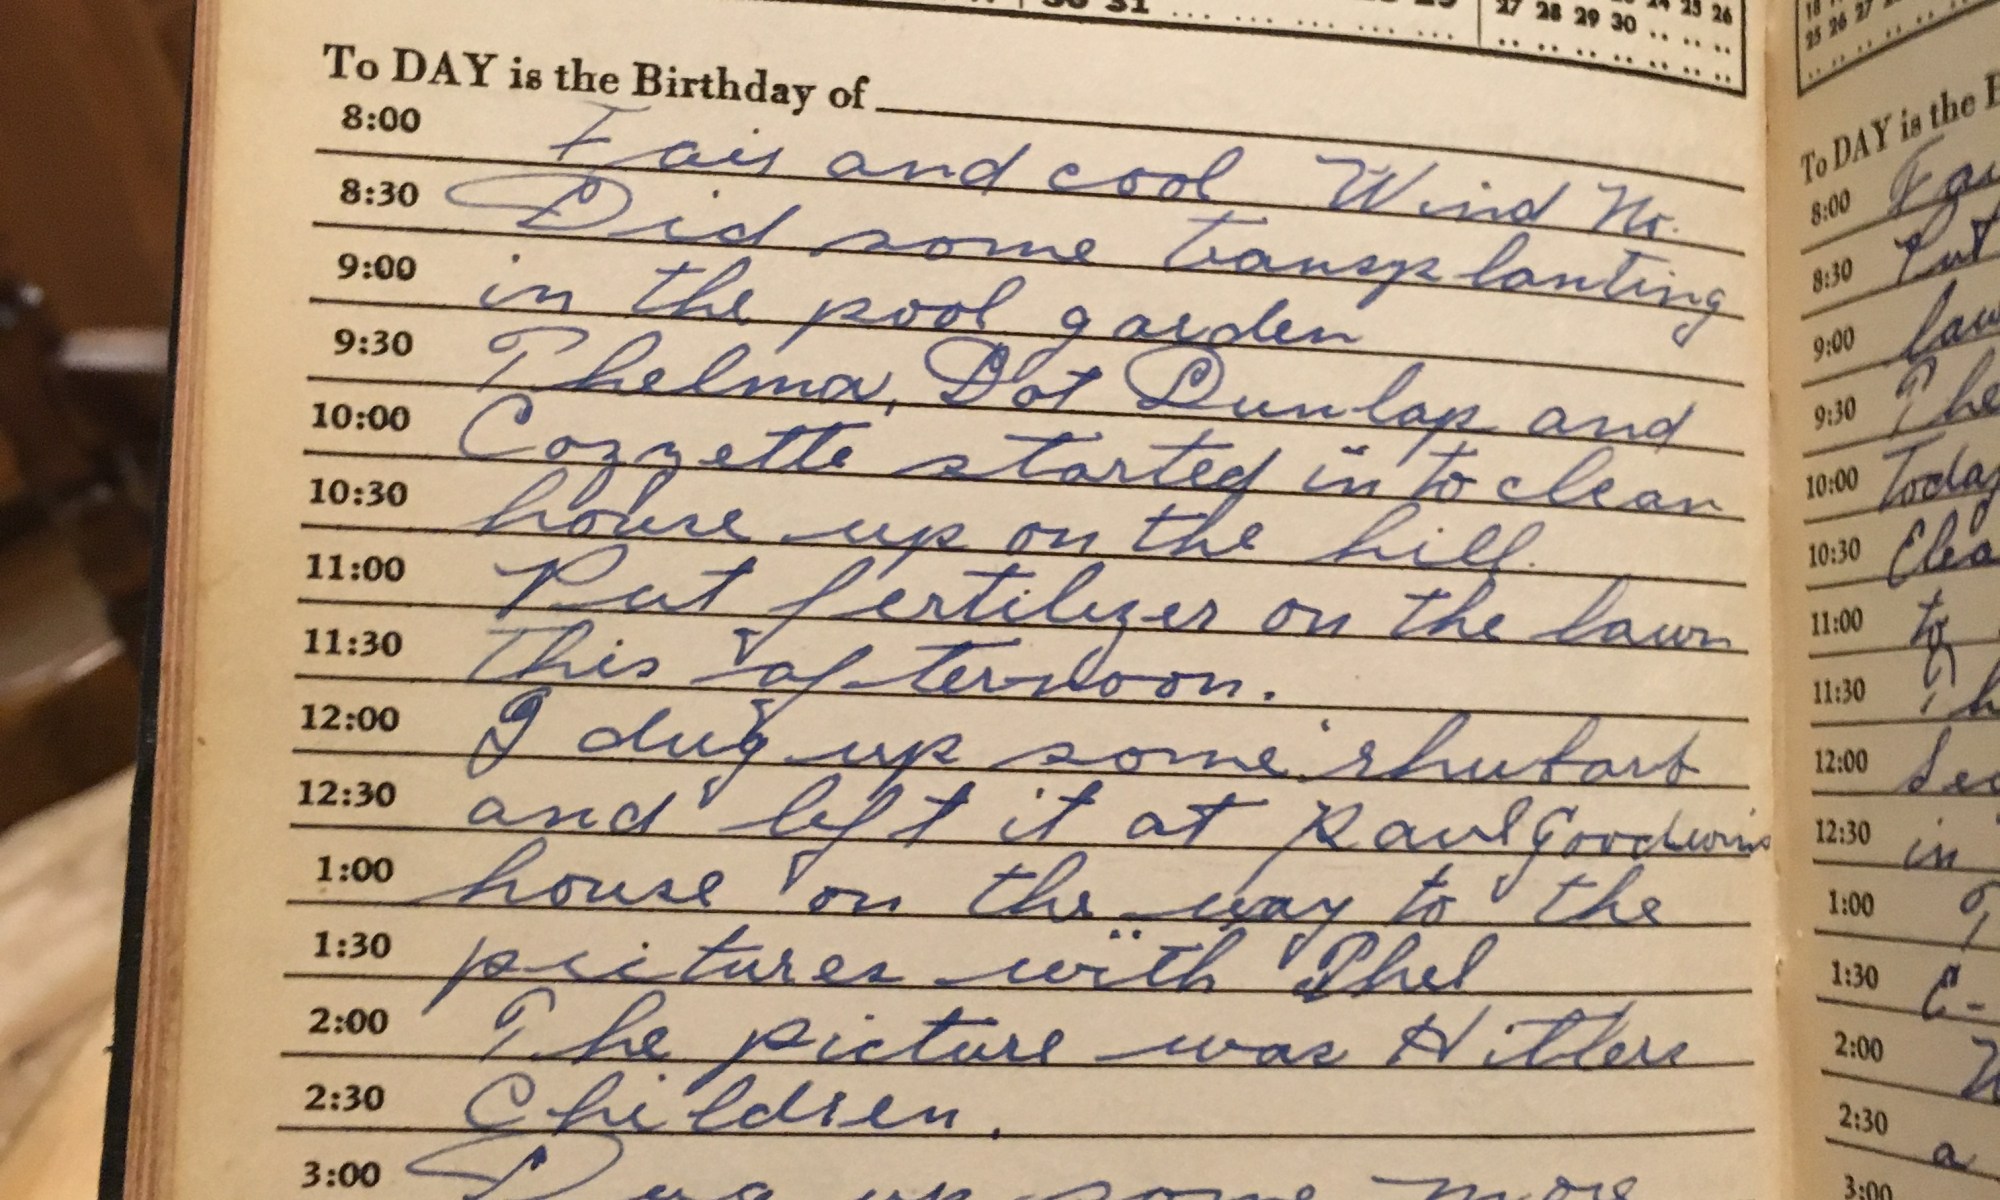 30 31 ... ... ... ... ... 25
27 28 29 30 .. .. ..
24 25 26
To DAY is the Birthday of
8:00 Fair and cool Wind No.
8:30 Did some transplanting
9:00 in the pool garden
9:30 Thelma, Dot Dunlap and
10:00 Cozzette started in to clean
10:30 house up on the hill.
11:00 Put fertilizer on the lawn
11:30 this afternoon.
12:00 I dug up some rhubarb
12:30 and left it at Paul Goodwins
1:00 house on the way to the
1:30 pictures with Thel
2:00 The picture was Hitlers
2:30 Children.
3:00 Dug up some more
18
25 26 27
To DAY is the B
8:00 Fai
8:30 Put
9:00 law
9:30 The
10:00 Today
10:30 Clea
11:00 to
11:30 Th
12:00
12:30 in
1:00 T
1:30
2:00
2:30 a
3:00